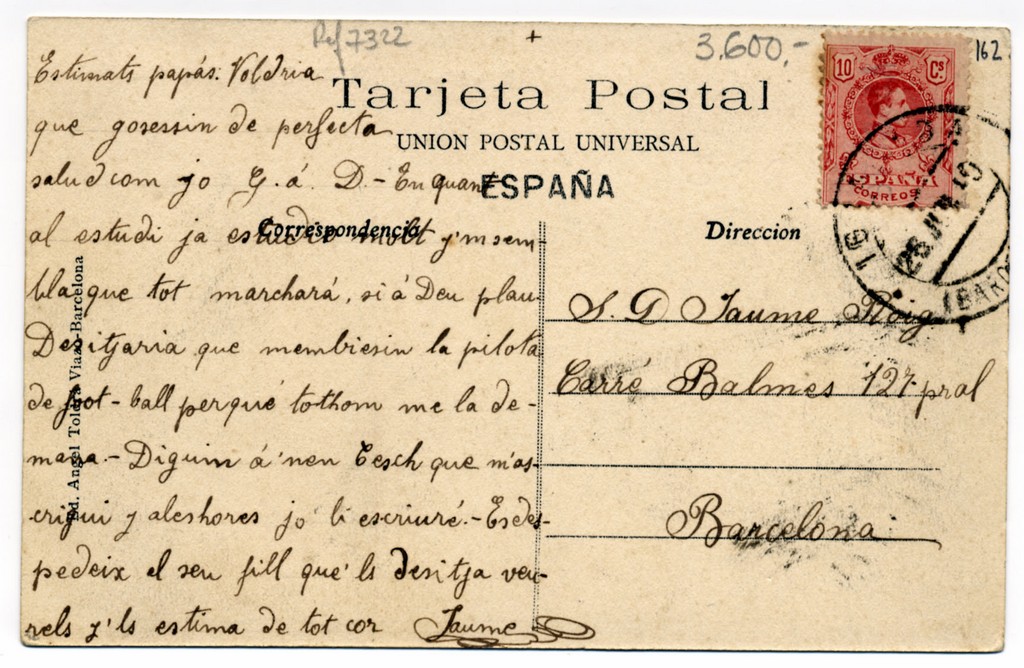 Ref 7322
3.600,-
162
Tarjeta Postal
UNION POSTAL UNIVERSAL
ESPAÑA
Correspondencia
Direccion
10 Cs
ESPAÑA
CORREOS
Estimats papás: Voldria
que gosessin de perfecta
salud com jo G. á. D.- En quant
al estudi ja estudio molt y'm sem-
bla que tot marchará, si á Deu plau
Desitjaria que m'embiesin la pilota
de foot-ball perqué tothom me la de-
mana.- Diguin á'nen Cesch que m'as-
crigui y aleshores jo li escriuré.- Es des-
pedeix el seu fill que'ls desitja veu-
rels y'ls estima de tot cor Jaume
S. D Jaume Roig
Carré Balmes 127 pral
Barcelona
Ed. Angel Toldrá Viazo Barcelona